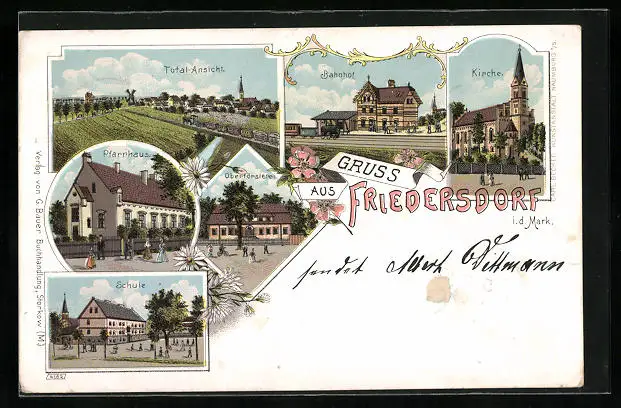 Total-Ansicht.
Bahnhof
Kirche.
Pfarrhaus.
Oberförsterei
Schule
GRUSS
AUS
FRIEDERSDORF
i.d. Mark.
sendet Albert Dittmann
Verlag von G. Bauer Buchhandlung, Storkow (M.)
KUNSTANSTALT, NAUMBURG a/S.